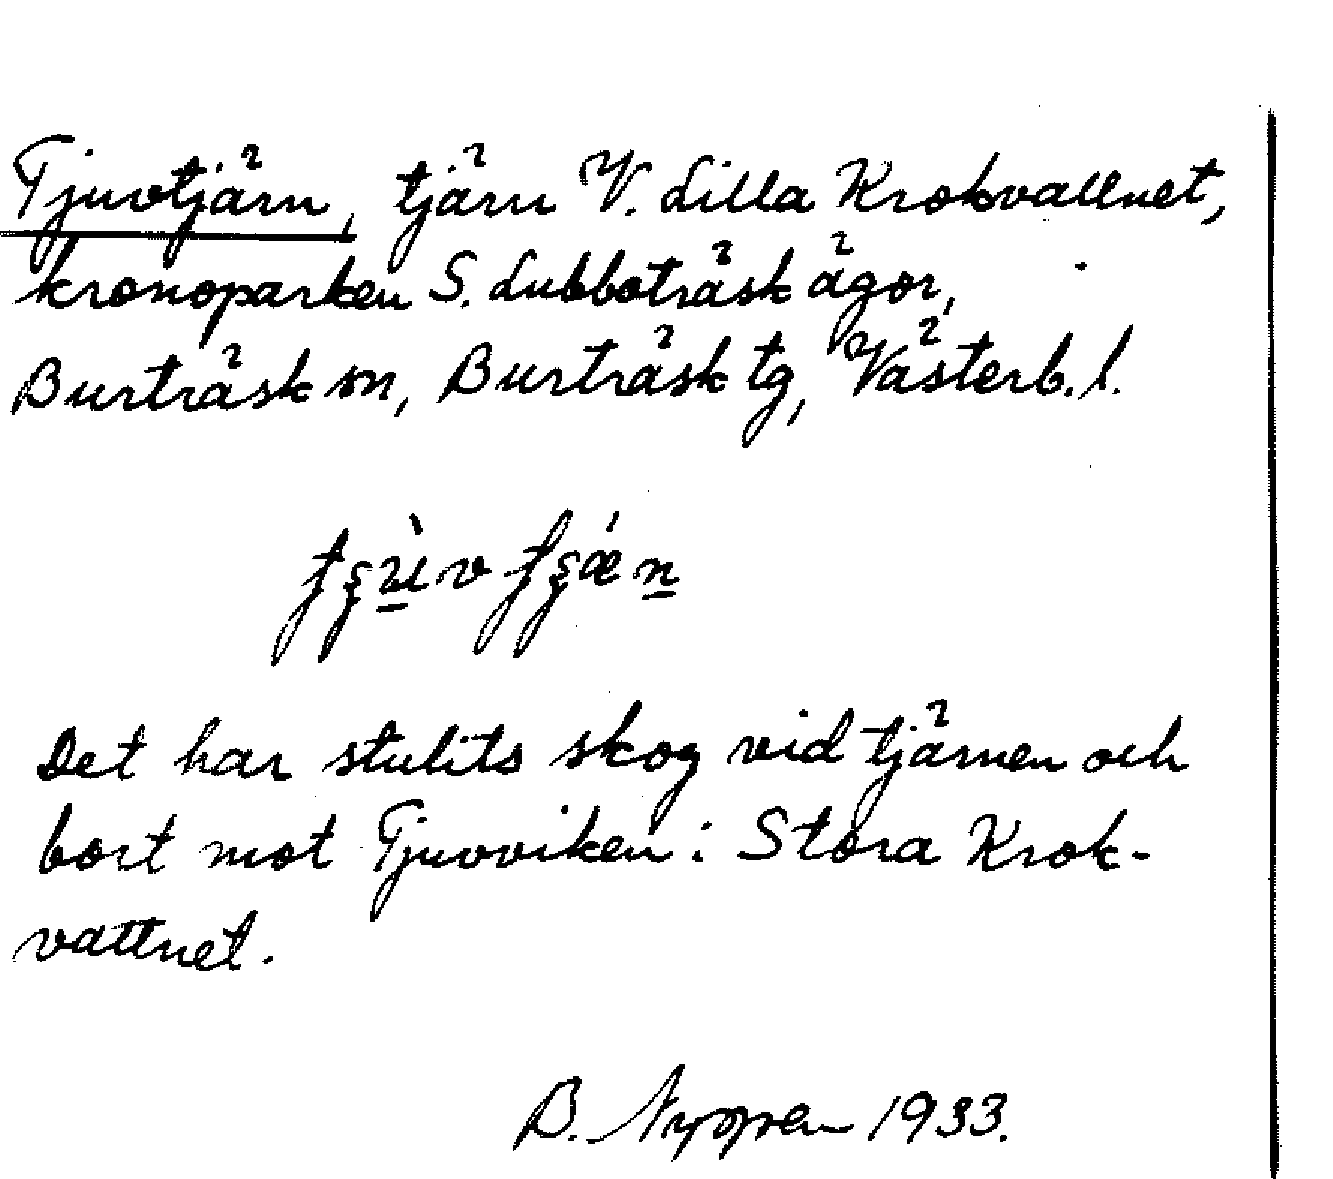 Tjuvtjärn, tjärn V. Lilla Krokvattnet,
kronoparken S. Lubboträsk ägor,
Burträsk sn, Burträsk tg, Västerb. l.
Det har stulits skog vid tjärnen och
bort mot Tjuvviken i Stora Krok-
vattnet.
B. 1933.